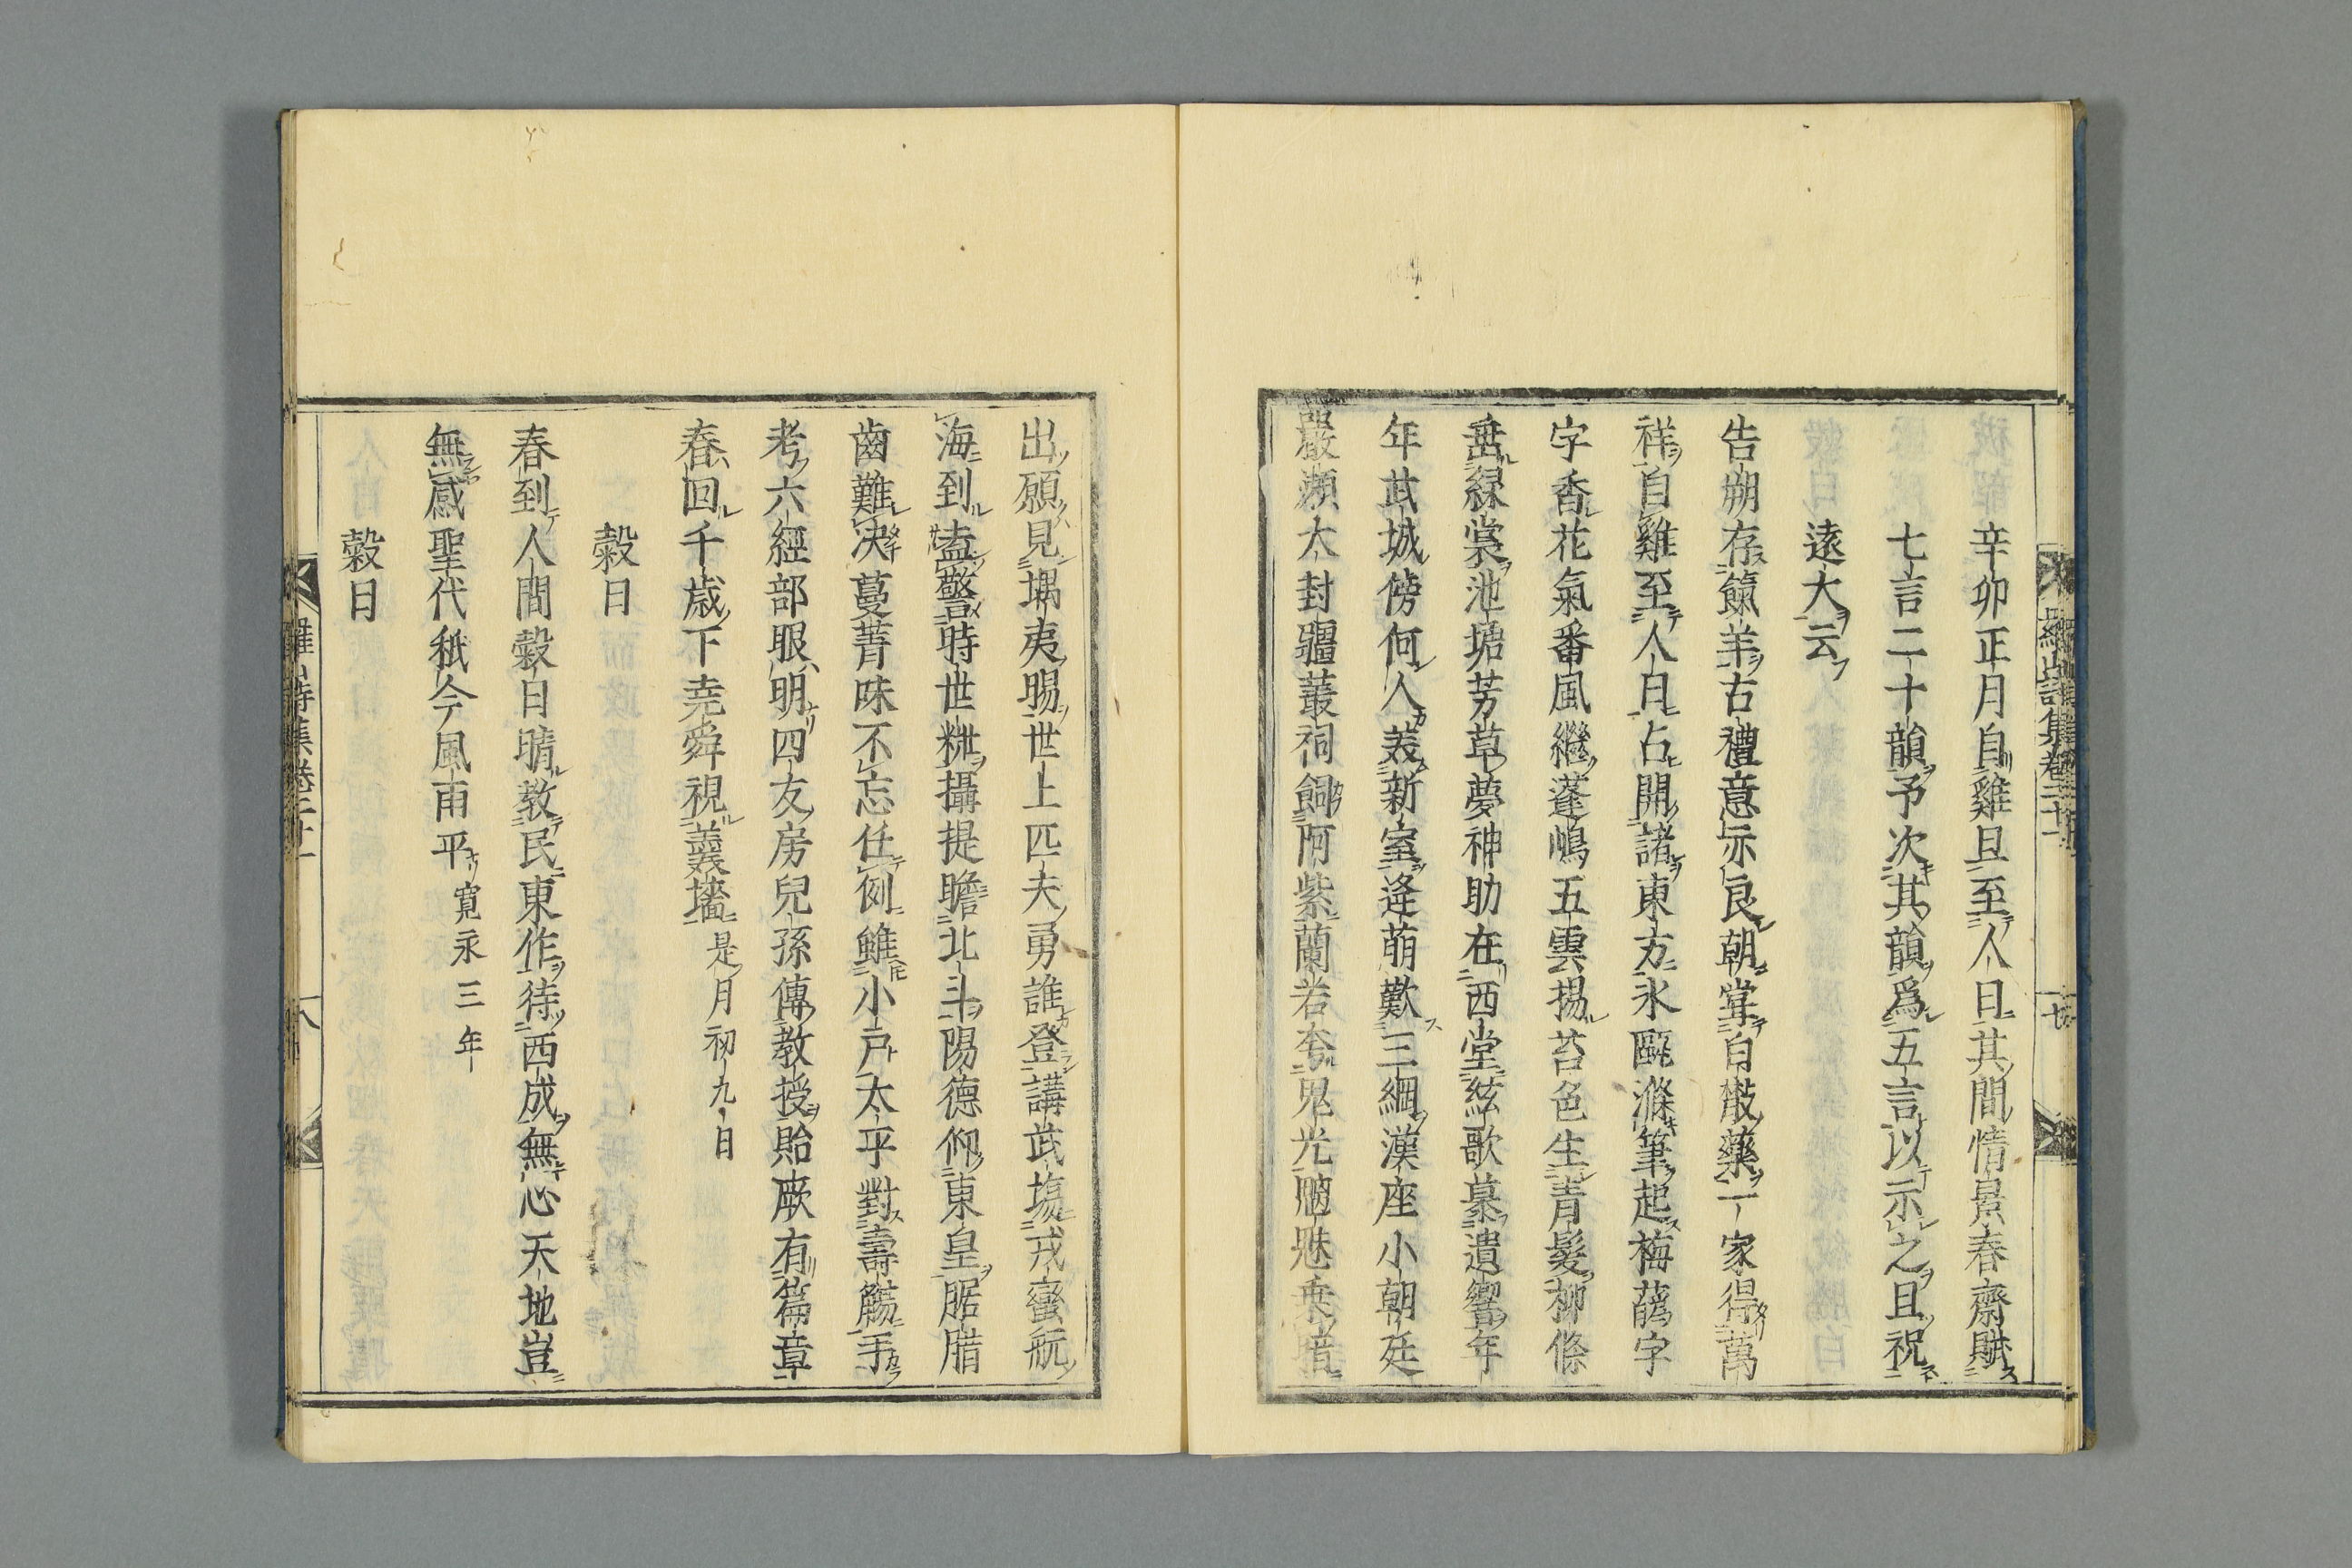 辛卯正月自雞旦至人日其間情景春齋賦
七言二十韻予次其韻爲五言以示之且祝
遠大云
告朔存餼羊古禮意示良朝掌自散藥一家得萬
祥自雞至人日占開諸東方氷甌滌筆起梅蘤字
字香花氣番風繼蓬嶋五雲揚苔色生青髮柳條
垂綠裳池塘芳草夢神助在西堂絃歌慕遺響年
年武城傍何人羨新室逢萠歎三綱漢座小朝廷
嚴瀬大封疆叢祠飼阿紫蘭若夸鬼光魍魅乗暗
出願見堣夷賜世上匹夫勇誰登講武塲戎蠻航
海到盍警時世粃攝提瞻北斗陽德仰東皇腒腊
齒難决蔓菁味不忘任例雖小戸太平對壽觴手
考六經部眼明四友房兒孫傳教授貽厥有篇章
春回千歳下尭舜視羹墻是月初九日
穀日
春到人間穀日晴教民東作待西成無心天地豈
無感聖代秪今風雨平寛永三年
穀日
羅山詩集卷三十一
七
羅山詩集卷三十一
八